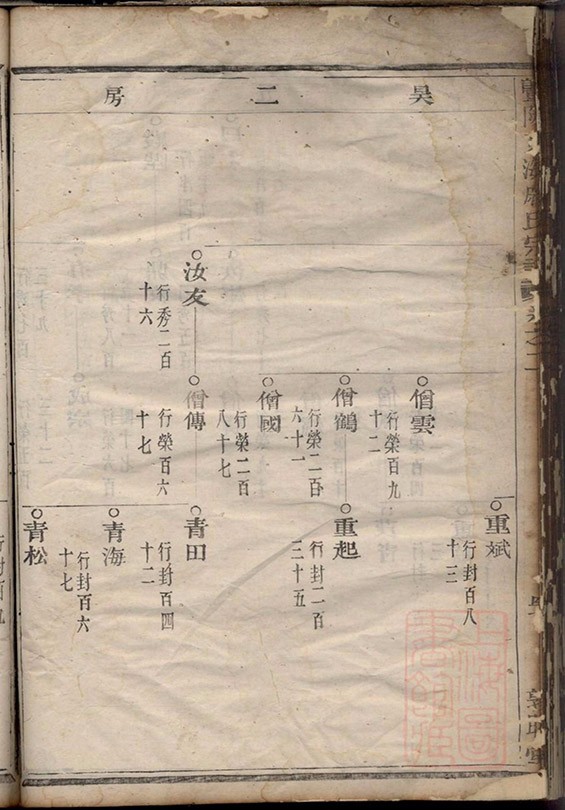 昊二房
重斌
行封百八
十三
僧雲
行榮百九
十二
僧鶴
行榮二百
六十一
重起
行封二百
三十五
僧國
行榮二百
八十七
汝友
行秀二百
十六
僧傳
行榮百六
十七
青田
行封百四
十二
青海
行封百六
十七
青松